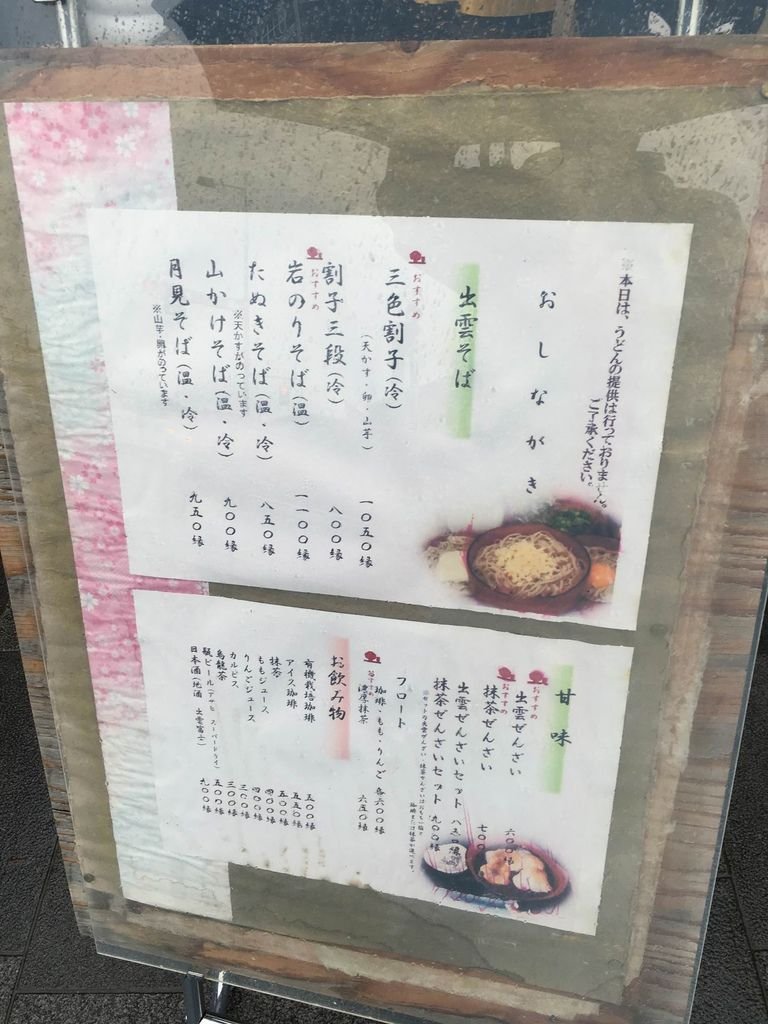 ※本日は、うどんの提供は行っておりません。
ご了承ください。
おしながき
出雲そば
おすすめ
三色割子(冷) 一〇五〇縁
(天かす・卵・山芋)
割子三段(冷) 八〇〇縁
おすすめ
岩のりそば(温) 一一〇〇縁
たぬきそば(温・冷) 八五〇縁
※天かすがのっています
山かけそば(温・冷) 九〇〇縁
月見そば(温・冷) 九五〇縁
※山芋・卵がのっています
甘味
おすすめ
出雲ぜんざい 六〇〇縁
おすすめ
抹茶ぜんざい 七〇〇
出雲ぜんざいセット 八五〇縁
抹茶ぜんざいセット 九〇〇縁
フロート
珈琲・もも・りんご 各六〇〇縁
おすすめ
濃厚抹茶 六五〇縁
お飲み物
有機栽培珈琲 五〇〇縁
アイス珈琲 五五〇縁
抹茶 五〇〇縁
ももジュース 四〇〇縁
りんごジュース 四〇〇縁
カルピス 三〇〇縁
烏龍茶 三〇〇縁
瓶ビール(アサヒ スーパードライ) 五〇〇縁
日本酒(地酒 出雲富士) 九〇〇縁